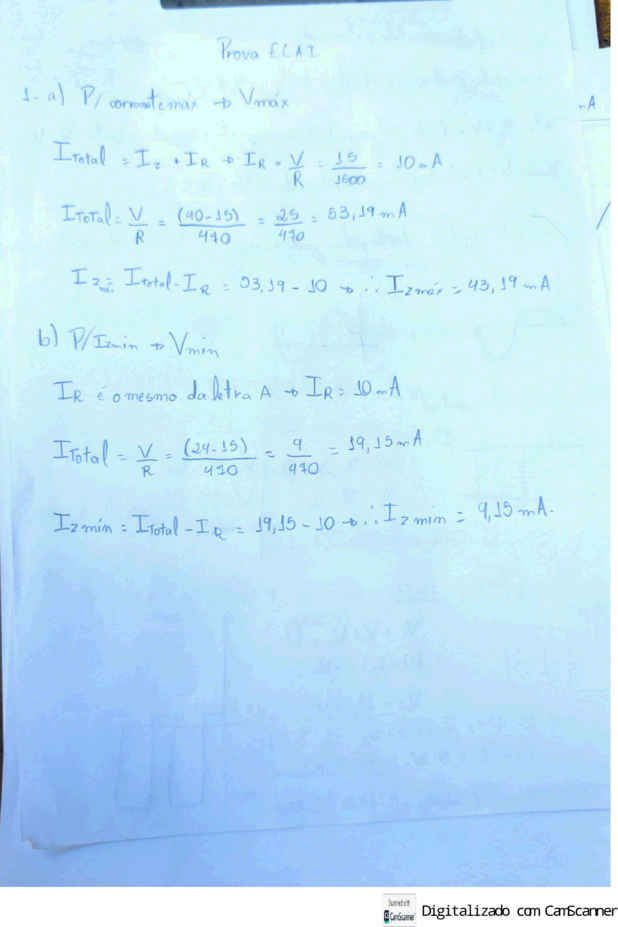 Prova ELAI
1- a) P/ corrente máx → Vmáx
-A
ITotal = Iz + IR → IR = V/R = 15/1500 = 10 mA.
ITOTAL = V/R = (40-15)/470 = 25/470 = 53,19 mA
Izmáx = ITotal - IR = 53,19 - 10 → ∴ Izmáx = 43,19 mA
b) P/ Izmin → Vmin
IR é o mesmo da letra A → IR = 10 mA
ITotal = V/R = (24-15)/470 = 9/470 = 19,15 mA
Izmín = ITotal - IR = 19,15 - 10 → ∴ Izmin = 9,15 mA.
Scanned with
CamScanner
Digitalizado com CamScanner